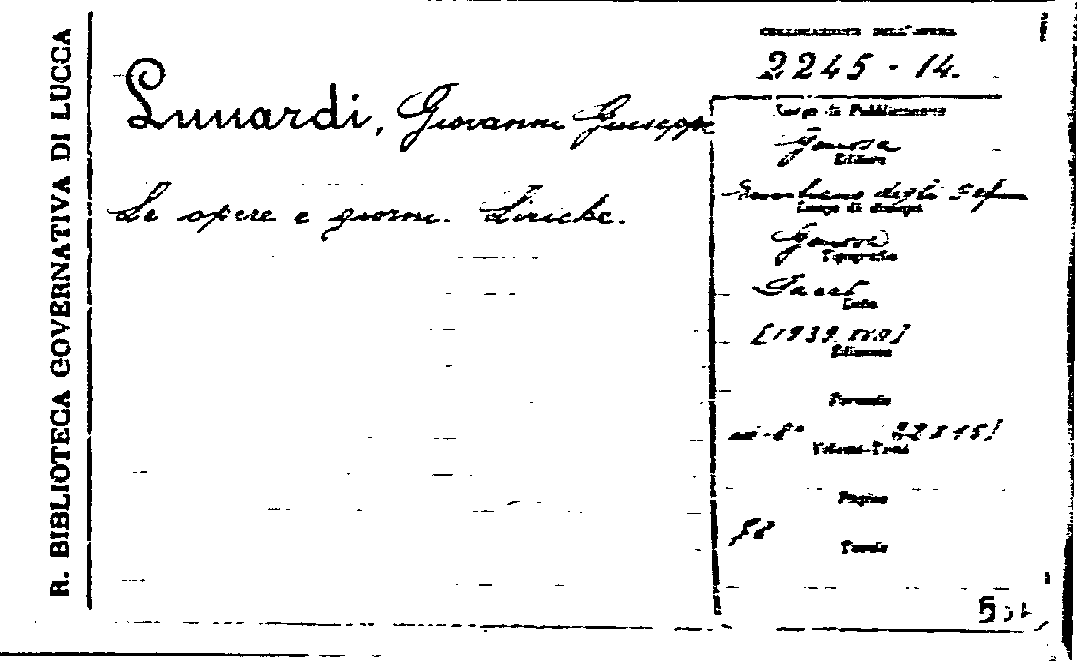 R. BIBLIOTECA GOVERNATIVA DI LUCCA
COLLOCAZIONE DELL'OPERA
2245 - 14.
Lunardi, Giovanni Giuseppe
Le opere e giorni. Liriche.
Luogo di Pubblicazione
Genova
Editore
degli
Luogo di stampa
Genova
Tipografia
Data
[1939
Edizione
Formato
in-8°
Volume-Tomi
Pagine
Tavole